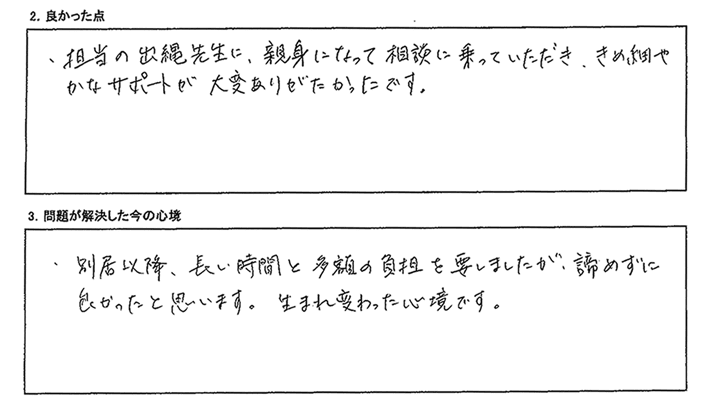 2. 良かった点
・担当の出縄先生に、親身になって相談に乗っていただき、きめ細や
かなサポートが大変ありがたかったです。
3. 問題が解決した今の心境
・別居以降、長い時間と多額の負担を要しましたが、諦めずに
良かったと思います。生まれ変わった心境です。